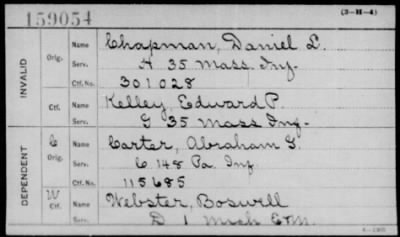 159054 (3-H-4)
INVALID
Orig. Name Chapman, Daniel L.
Serv. A 35 Mass. Inf.
Ctf. No. 301028
Ctf. Name Kelley, Edward P.
Serv. G 35 Mass Inf.
DEPENDENT
C Orig. Name Carter, Abraham G.
Serv. C 148 Pa. Inf
Ctf. No. 115685
W Ctf. Name Webster, Boswell
Serv. D 1 Mich E&M.